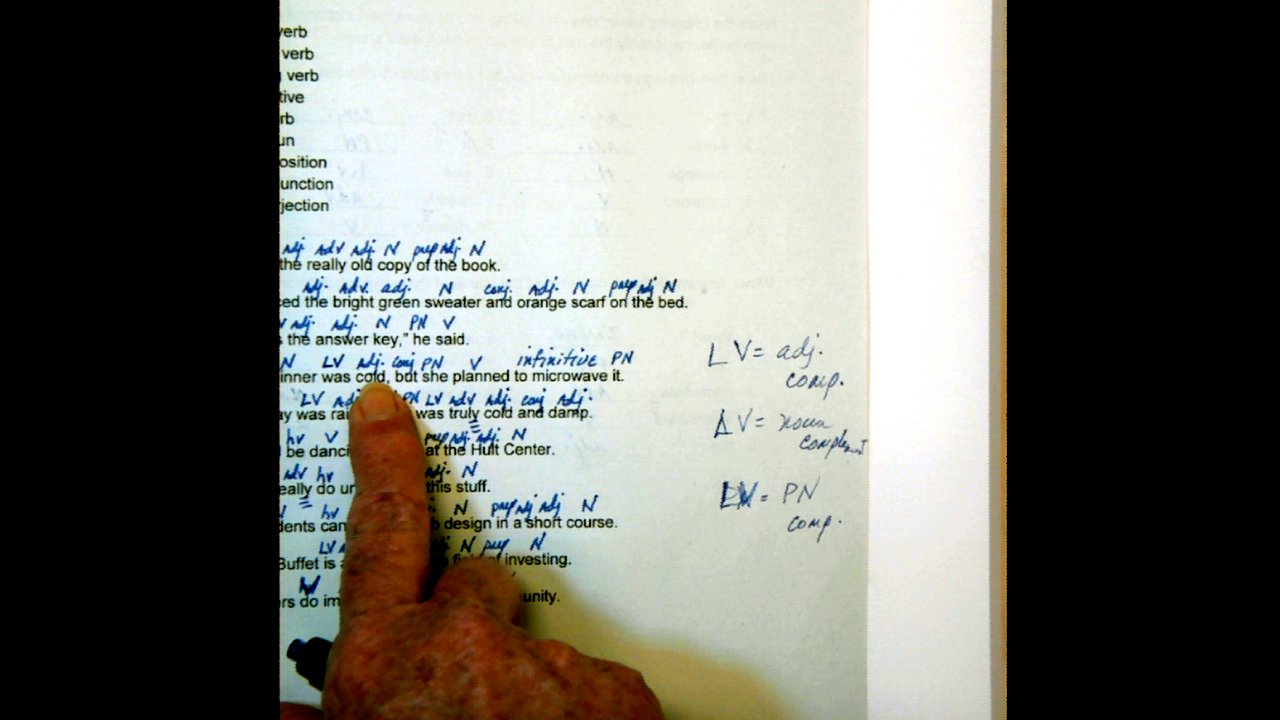 verb
verb
verb
tive
rb
un
osition
unction
jection
adj adv adj. N prep adj. N
the really old copy of the book.
adj. adv. adj. N conj. adj. N prep adj N
ced the bright green sweater and orange scarf on the bed.
adj. adj. N PN V
s the answer key," he said.
N LV adj. conj PN V infinitive PN
inner was cold, but she planned to microwave it.
LV PN LV adv adj. conj adj.
ay was rai was truly cold and damp.
hv V prep adj. adj. N
be danci at the Hult Center.
adv hv adj. N
eally do un this stuff.
hv N prep adj adj N
dents can design in a short course.
LV N prep N
Buffet is of investing.
ers do im unity.
LV = adj.
comp.
LV = noun
complement
LV = PN
comp.